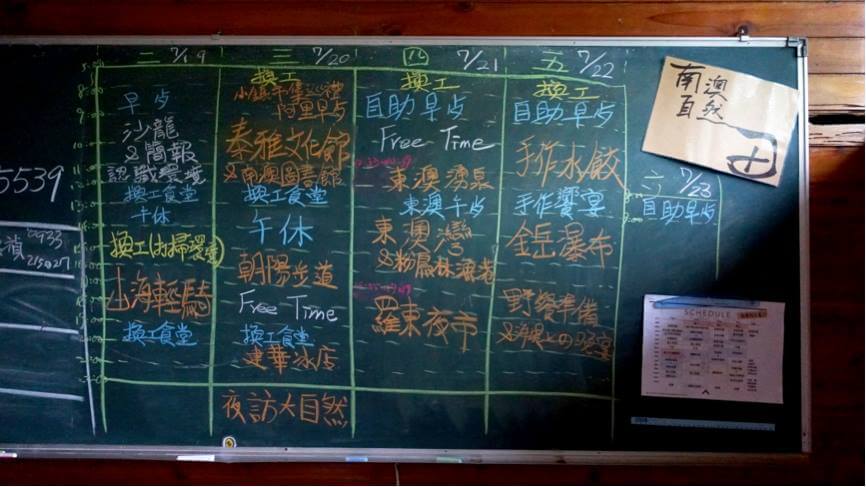 5539
二 7/19
早点
沙龍
&簡報
認識環境
換工食堂
午休
換工(打掃環境)
山海輕騎
換工食堂
三 7/20
換工
阿里早点
泰雅文化館
&南澳圖書館
換工食堂
午休
朝陽步道
Free Time
換工食堂
建華冰店
夜訪大自然
四 7/21
換工
自助早点
Free Time
東澳湧泉
東澳午点
東澳灣
&粉鳥林漁港
羅東夜市
五 7/22
換工
自助早点
手作水餃
手作饗宴
金岳瀑布
野餐準備
六 7/23
自助早点
南澳
自然
田
SCHEDULE